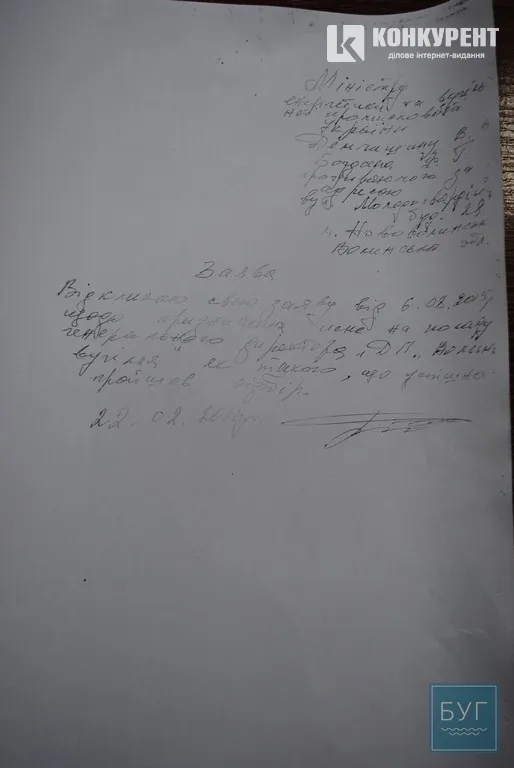 КОНКУРЕНТ
ділове інтернет-видання
Міністру
енергетики та вугіль
ної промисловості
України
Демчишину В. В
Богдана
проживаючого за
адресою
вул Молодогвардійс
буд. 29
м. Нововолинськ
Волинська обл.
Заява
Відкликаю свою заяву від 6.08.2015р
щодо призначення мене на посаду
генерального директора „ДП „Волинь
вугілля" як такого, що успішно
пройшов відбір.
22.02.2016р.
БУГ